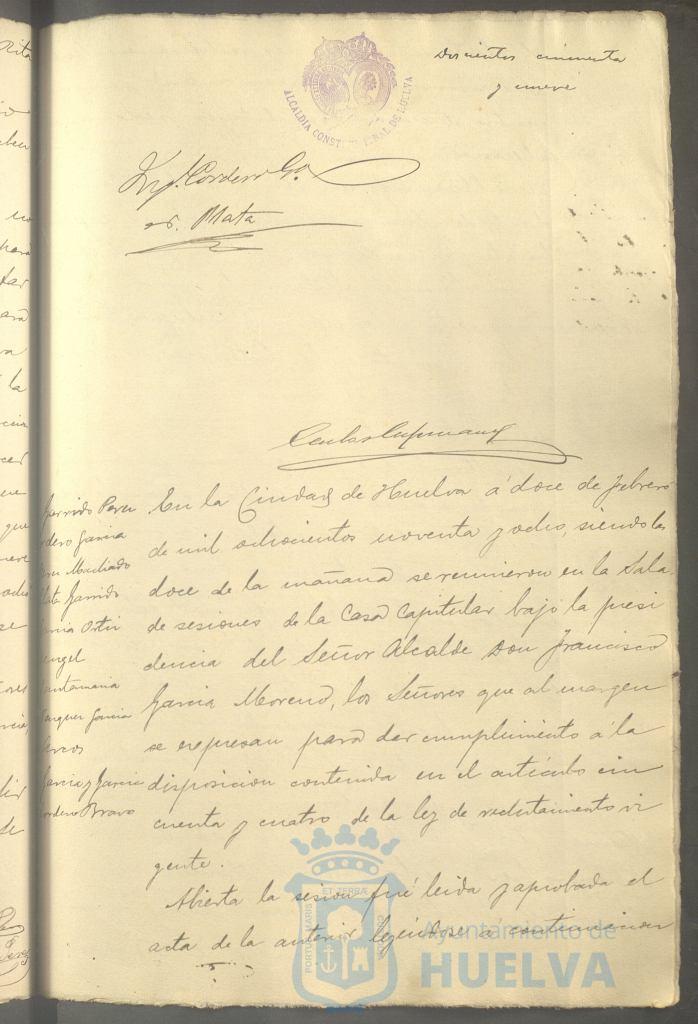 Doscientos cincuenta
y nueve
ALCALDIA CONSTITUCIONAL DE HUELVA
Cordero Ga.
Mata
Garrido Perez
Cordero Garcia
Perez Machado
Mata Garrido
Garcia Ortiz
Rengel
Santamaria
Vazquez Garcia
Arcos
Garcia y Garcia
Cordero Bravo
En la Ciudad de Huelva á doce de Febrero
de mil ochocientos noventa y ocho, siendo las
doce de la mañana se reunieron en la Sala
de sesiones de la Casa Capitular bajo la presi
dencia del Señor Alcalde Don Francisco
Garcia Moreno, los Señores que al margen
se expresan para dar cumplimiento á la
disposicion contenida en el articulo cin
cuenta y cuatro de la ley de reclutamiento vi
gente.
Abierta la sesion fué leida y aprobada el
acta de la anterior leyéndose á continuacion
PORTUS MARIS ET TERRÆ CUSTODIA
Ayuntamiento de
HUELVA